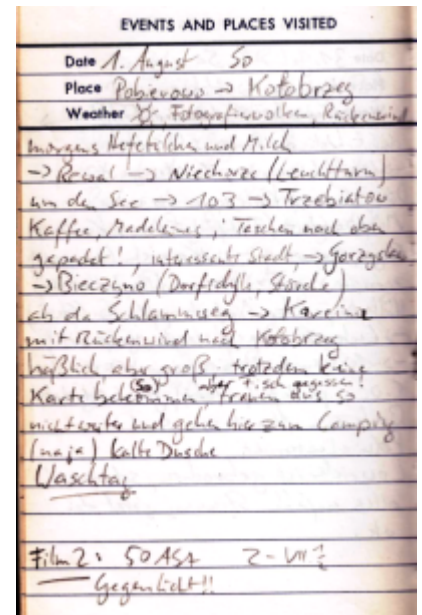 EVENTS AND PLACES VISITED
Date 1. August So
Place Pobierowo -> Kołobrzeg
Weather Fotografierwolken, Rückenwind
morgens Hefeteilchen und Milch
-> Rewal -> Niechorze (Leuchtturm)
um den See -> 103 -> Trzebiatow
Kaffee, Madeleines, Taschen nach oben
gepackt!, interessante Stadt, ->
-> Bieczyno (Dorfidylle, Störche)
ab da Schlammweg ->
mit Rückenwind nach Kołobrzeg
häßlich aber groß trotzdem keine
Karte bekommen (So) aber Fisch gegessen! trauen uns so
nicht weiter und gehen hier zum Camping
(naja) kalte Dusche
Waschtag
Film 2: 50 ASA
Gegenlicht!!